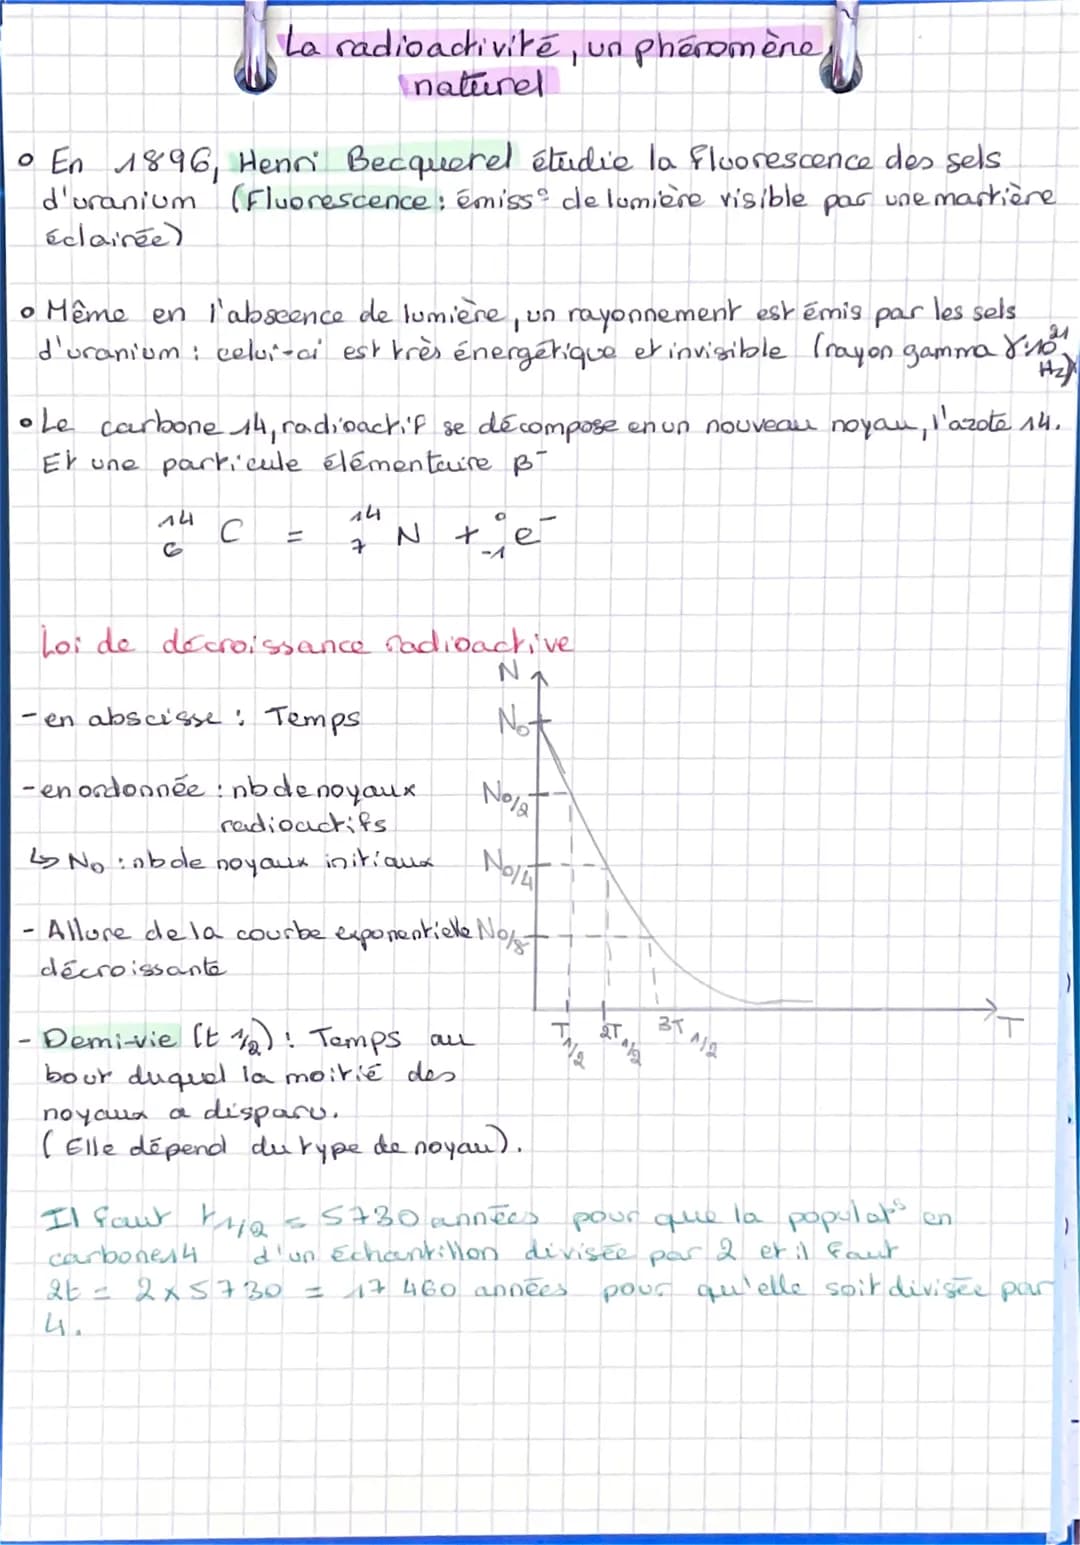 La radioactivité, un phénomène
naturel
o En 1896, Henri Becquerel étudie la fluorescence des sels
d'uranium (Fluorescence : émiss° de lumière visible par une martière
éclairée)
o Même en l'abscence de lumière, un rayonnement est émis par les sels
d'uranium : celui-ci est très énergétique et invisible (rayon gamma γ:10²¹
Hz)
• Le carbone 14, radioactif se décompose en un nouveau noyau, l'azote 14.
Et une particule élémentaire β⁻
¹⁴₆ C = ¹⁴₇ N + ⁰₋₁ e⁻
Loi de décroissance radioactive
- en abscisse : Temps
- en ordonnée : nb de noyaux
radioactifs
↳ N₀ : nb de noyaux initiaux
- Allure de la courbe exponentielle
décroissante
N
N₀
N₀/2
N₀/4
N₀/8
T 1/2
2T 1/2
3T 1/2
T
- Demi-vie (t 1/2) : Temps au
bout duquel la moitié des
noyaux a disparu.
(Elle dépend du type de noyau).
Il faut t1/2 = 5730 années pour que la populat° en
carbone 14 d'un échantillon divisée par 2 et il faut
2t = 2 x 5730 = 17 460 années pour qu'elle soit divisée par
4.